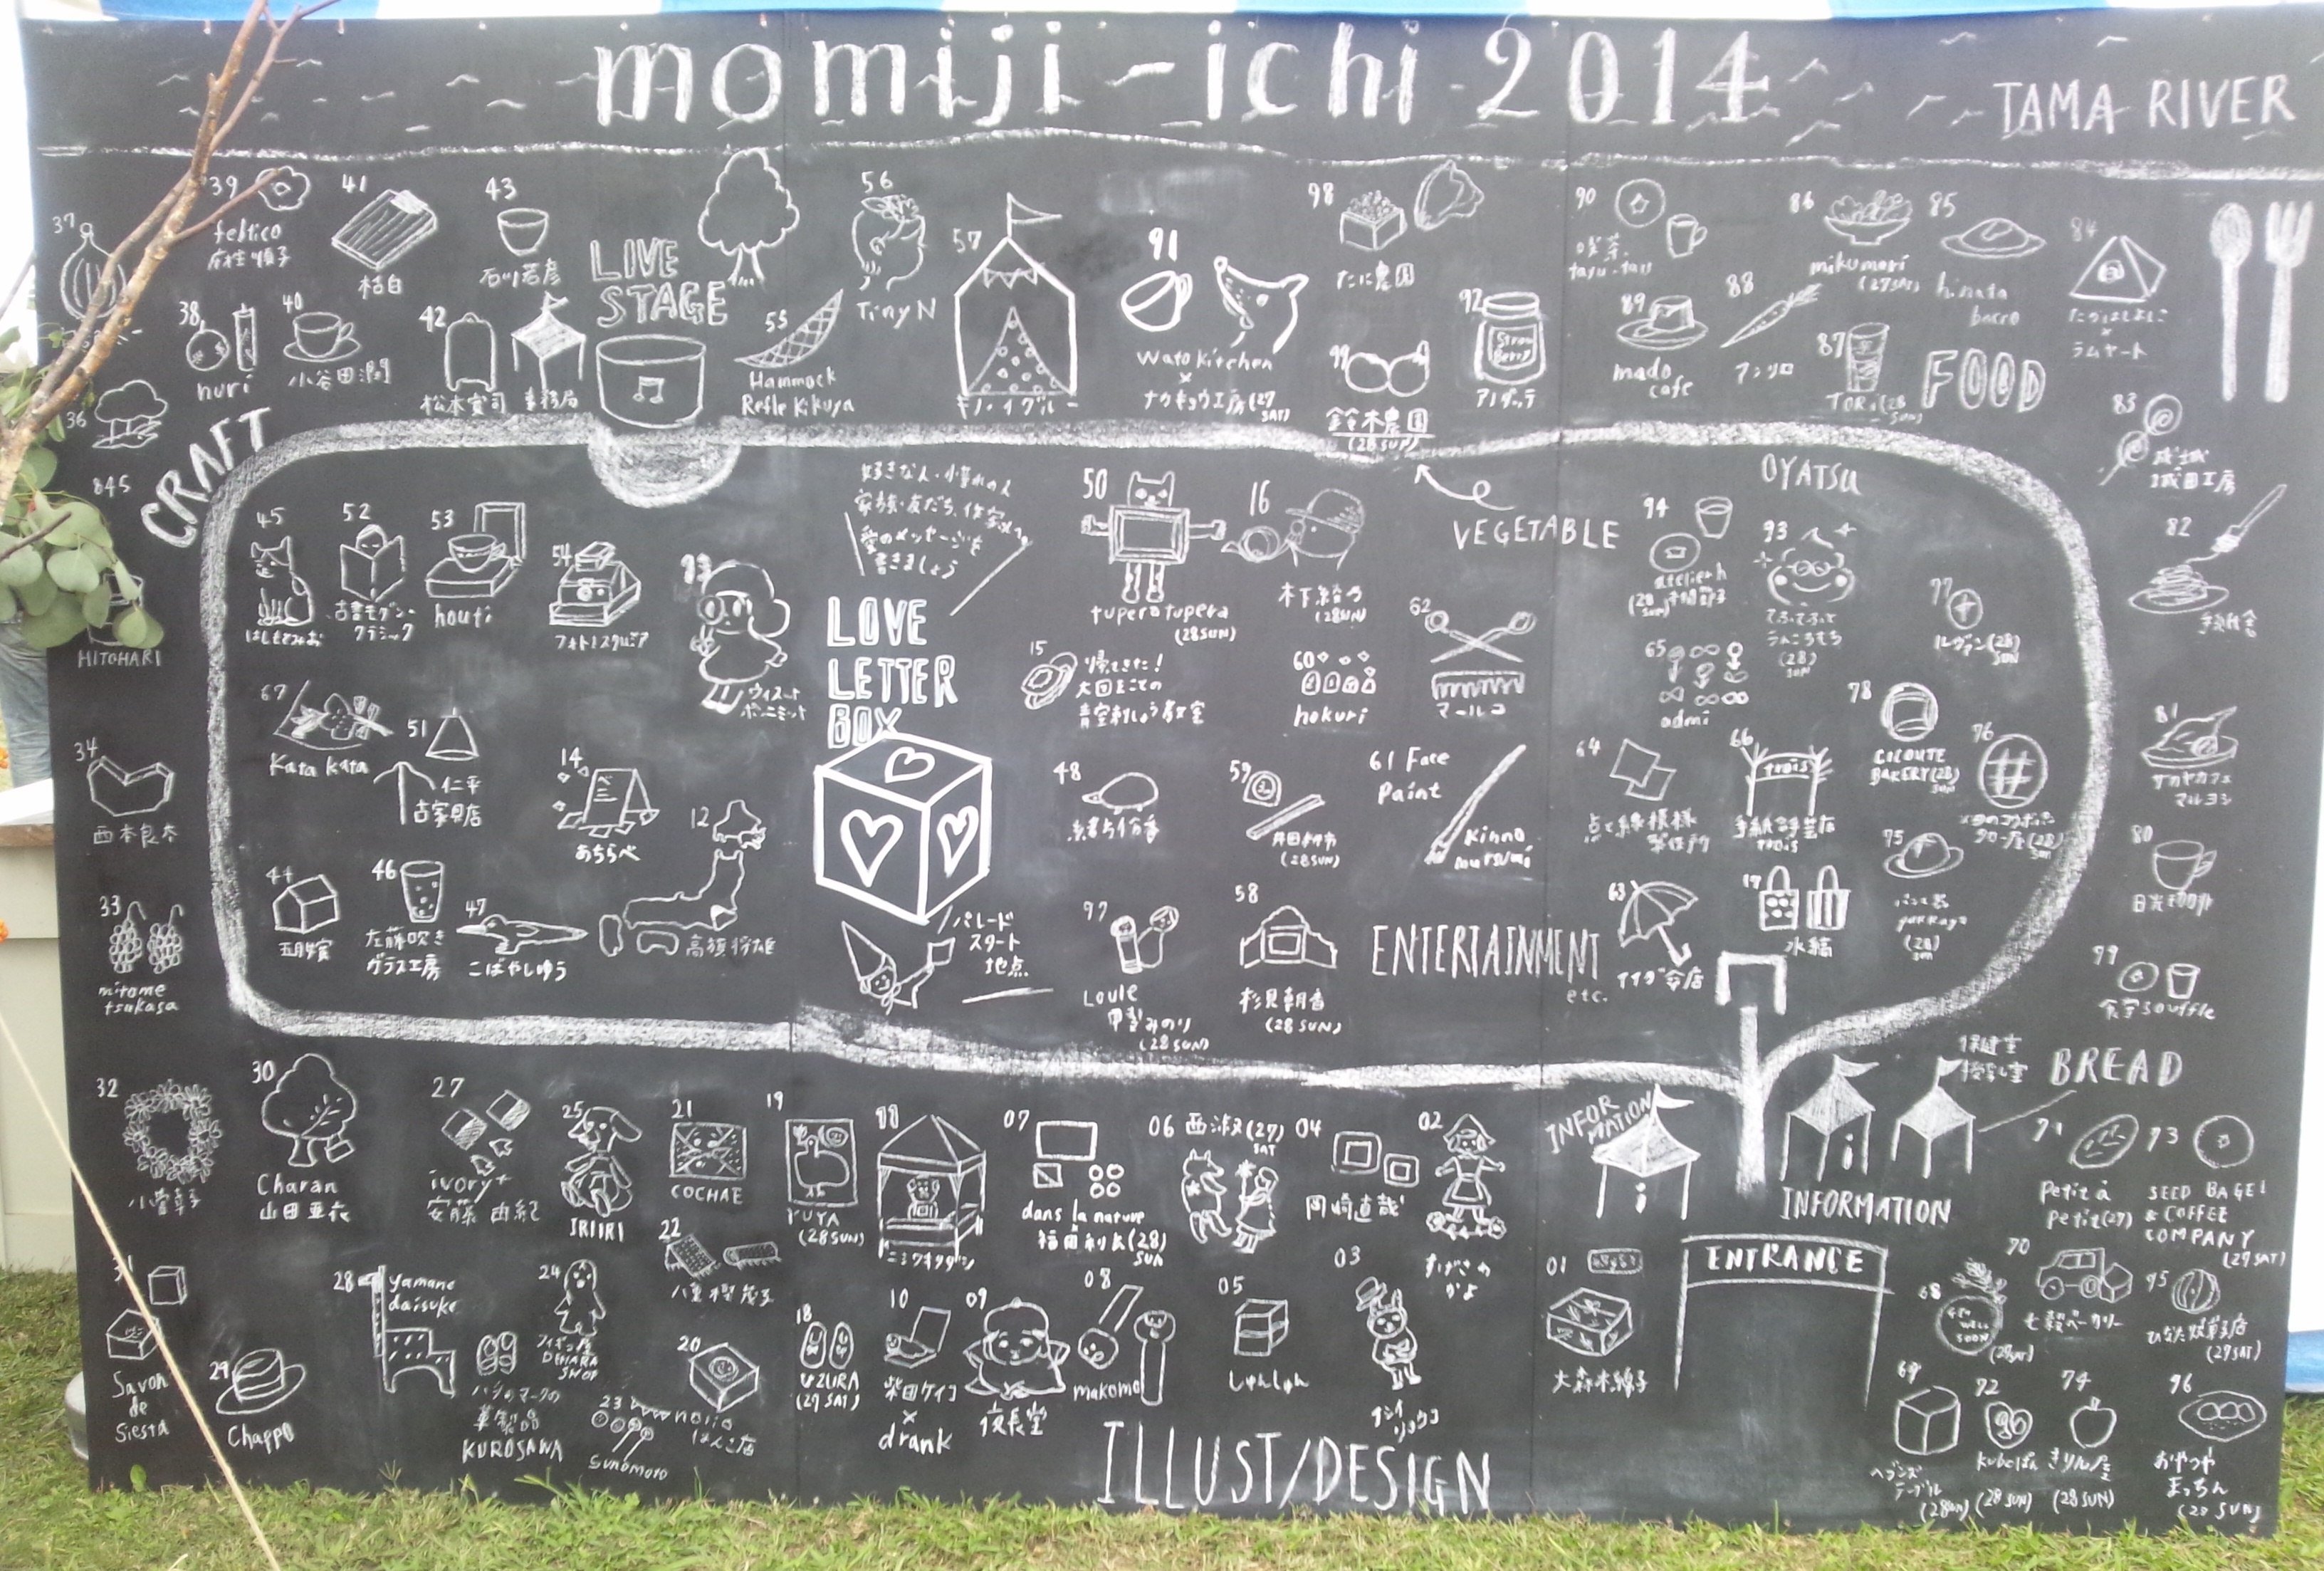 momiji-ichi 2014
TAMA RIVER
37
39
feltico
麻生順子
41
枯白
43
石川若彦
LIVE
STAGE
56
Tiny N
57
キノ・イグルー
91
Wato kitchen
×
ナカキョウ工房(27
SAT)
98
たに農園
90
喫茶
tayu-tau
86
mikumari
(27SAT)
85
hinata
84
ラムヤート
38
nuri
40
小谷田潤
42
松本寛司
事務局
55
Hammock
Refle Kikuya
99
鈴木農園
(28 SUN)
92
Straw
Berry
アノダッテ
89
mado
cafe
88
アンリロ
87
(28
SUN)
FOOD
36
845
CRAFT
83
成城
城田工房
45
はしもとみお
52
古書モダン・
クラシック
53
houti
54
13
ウィスット
ポンニミット
好きな人・小豊かの人
家族・友だち、作家さんへ
愛のメッセージを
書きましょう
LOVE
LETTER
BOX
50
tupera tupera
(28SUN)
16
(28SUN)
VEGETABLE
OYATSU
94
atelier h
(28
SUN)
93
てふてふと
うんころもち
(28)
SUN
77
ルヴァン(28)
SUN
82
HITOHARI
15
帰ってきた!
大図まことの
青空刺しゅう教室
60
hokuri
62
マールコ
65
admi
78
COCOUTE
BAKERY(28)
SUN
76
67
Kata kata
51
仁平
古家具店
14
あちらべ
12
高旗将雄
48
59
(28SUN)
61 Face
Paint
Kinno
mutsumi
64
点と線模様
製作所
66
trois
手紙舎手芸店
trois
81
サカヤカフェ
マルヨシ
34
西本良太
75
(28)
SUN
80
日光珈琲
44
五月女寛
46
左藤吹き
ガラス工房
47
こばやしゆう
パレード
スタート
地点
97
Loule
甲斐みのり
(28 SUN)
58
杉見朝香
(28 SUN)
ENTERTAINMENT
etc.
63
イイダ傘店
17
水縞
33
mitome
tsukasa
79
食堂souffle
32
小菅幸子
30
Charan
山田亜衣
27
ivory+
安藤由紀
25
IRIIRI
21
COCHAE
19
YUYA
(28SUN)
11
ニシワキタダシ
07
dans la nature
×
福田利之(28)
SUN
06 西淑(27)
SAT
04
岡崎直哉
02
すげさわ
かよ
INFOR
MATION
i
i
保健室
授乳室
INFORMATION
BREAD
71
petit à
petit(27)
73
SEED BAGEL
& COFFEE
COMPANY
(27SAT)
31
Savon
de
Siesta
29
Chappo
28
yamane
daisuke
ハシのマークの
革製品
KUROSAWA
24
フィギュア屋
DENARA
SHOP
22
八重樫茂子
23
sunomoto
20
norio
はんこ店
18
UZURA
(27 SAT)
10
柴田ケイコ
×
drank
09
夜長堂
08
makomo
05
しゅんしゅん
03
イシイ
リョウコ
01
大森木綿子
ENTRANCE
68
GET
WELL
SOON
(27SAT)
70
七穀ベーカリー
95
ひなた焼菓子店
(27SAT)
69
ヘブンズ
テーブル
(28SUN)
72
kuboぱん
(28 SUN)
74
きりん屋
(28 SUN)
96
おやつや
まっちん
(28 SUN)
ILLUST/DESIGN